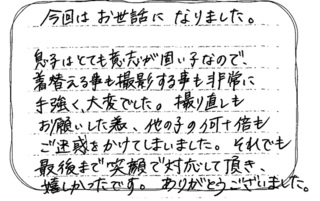 今回はお世話になりました。
息子はとても意志が固い子なので、
着替える事も撮影する事も非常に
手強く、大変でした。撮り直しも
お願いした為、他の子の何十倍も
ご迷惑をかけてしまいました。それでも
最後まで笑顔で対応して頂き、
嬉しかったです。ありがとうございました。